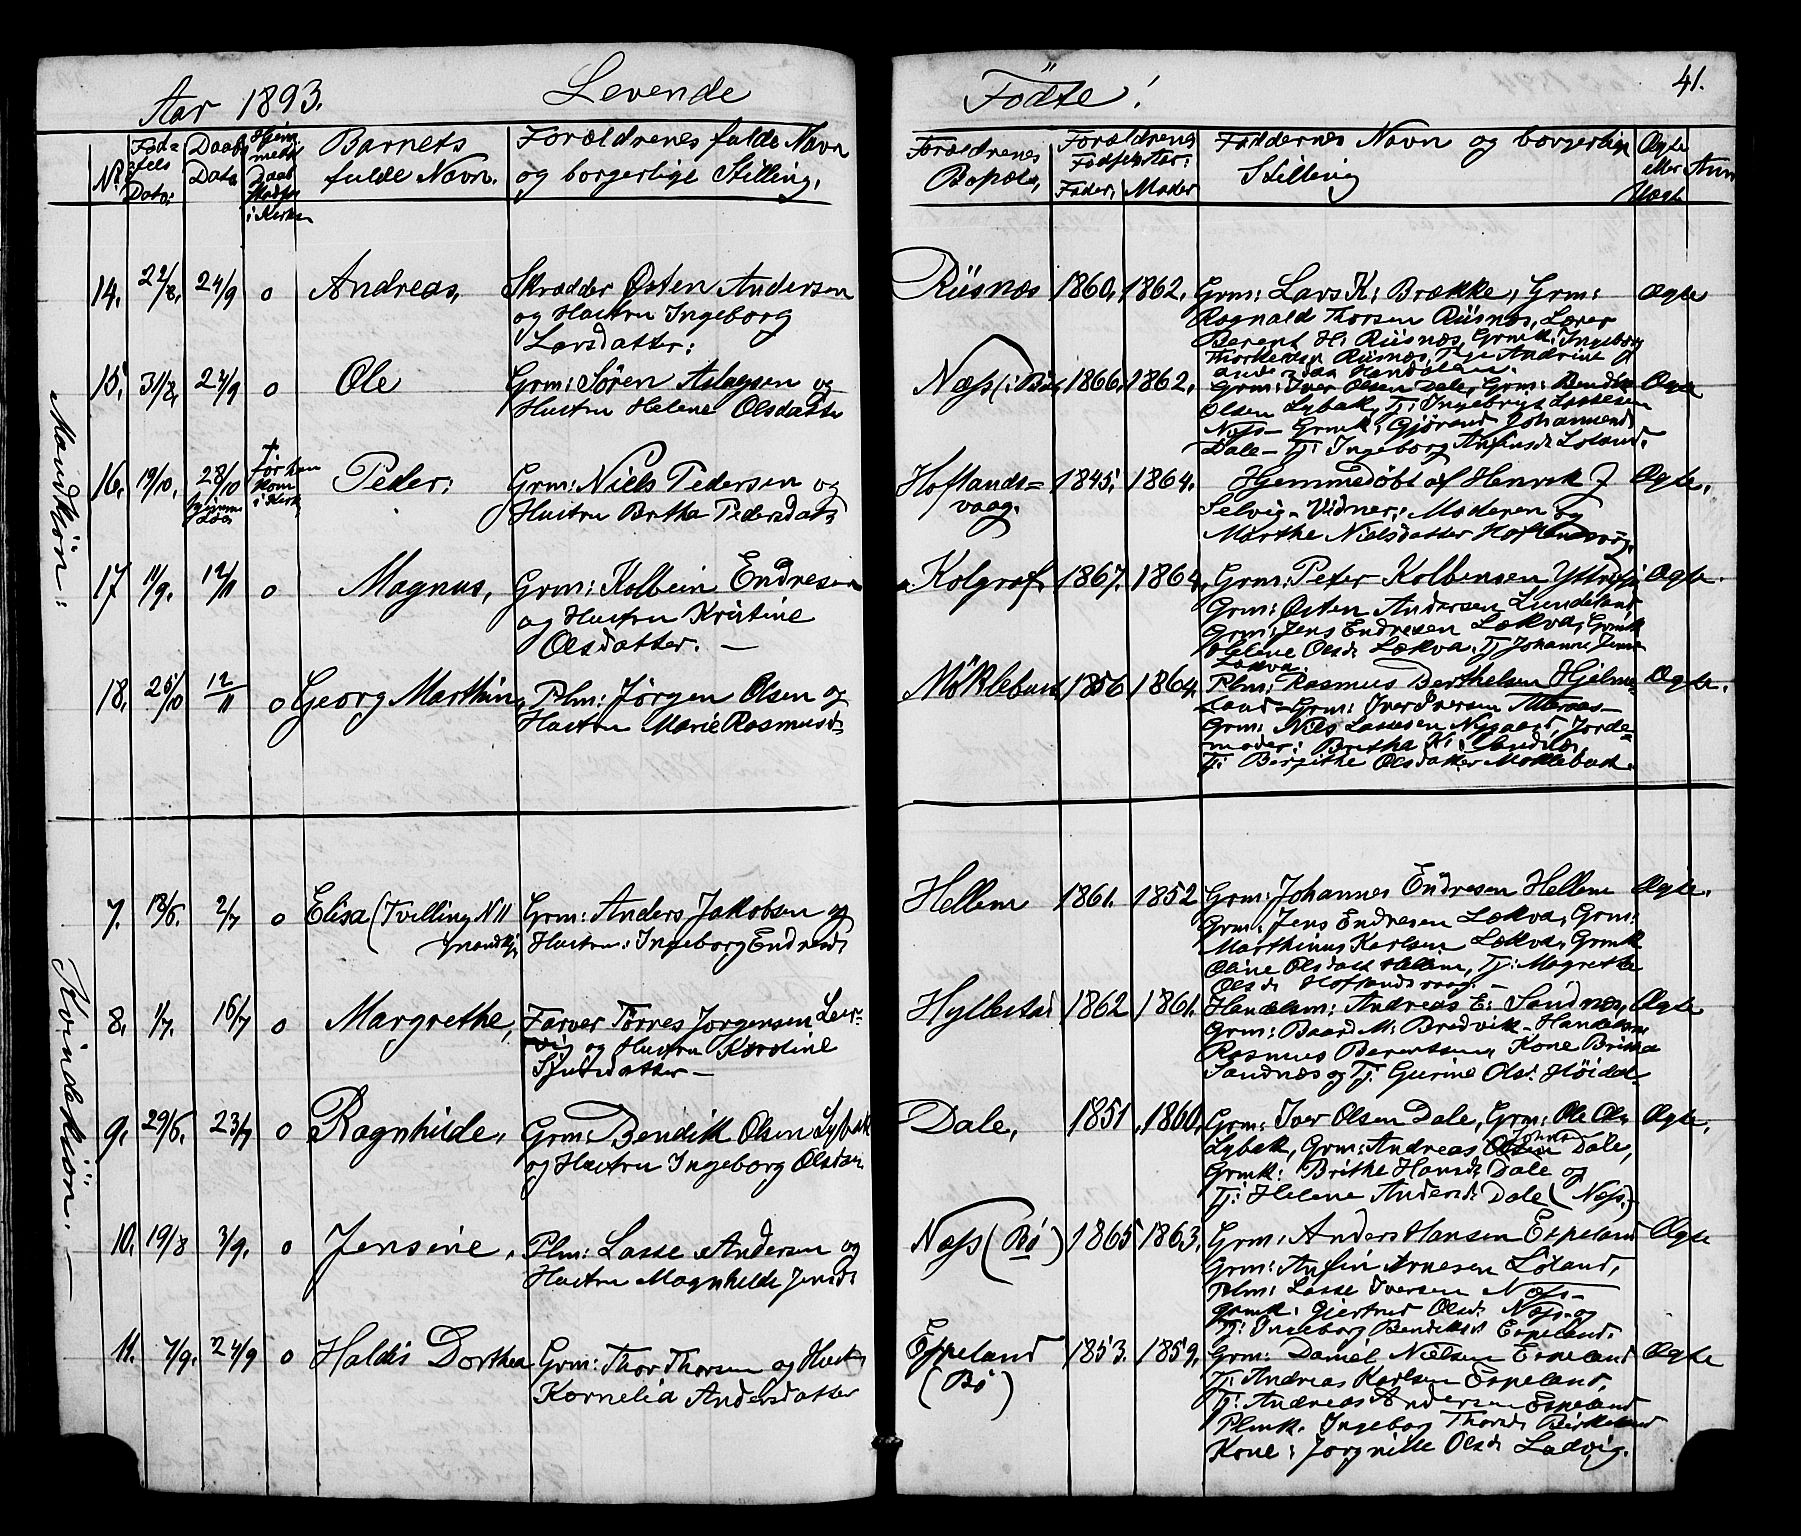 Aar 1893. Levende Födte! 41.
No Fødsels Dato: Daabs Dato Hjem̄edaab Stadf. i Kirken Barnets fulde Navn. Forældrenes fulde Navn og borgerlige Stilling. Forældrenes Bopæl, Forældrenes Fødselsaar: Fader, Moder Faddernes Navn og borgerlige Stilling Ægte eller Uægte Anm
Mandkjön:
14. 22/8. 24/9 o Andreas, Skrædder Østen Andersen Riisnæs 1860. 1862. Grm: Lars K: Brække, Grm: Ægte
og Hustru Ingeborg Rognald Thorsen Riisnæs, Lærer
Larsdatter: Berent H: Riisnæs, Grmk: Ingeborg
Riisnæs, Pige Andrine
15. 31/8. 24/9 o Ole Grm: Sören Aslagsen og Næss (i Bö) 1866. 1862. Grm: Iver Olsen Dale, Grm: Bendik Ægte
Hustru Helene Olsdatter Olsen Lybak, Tj: Ingebrigt Lassesen
Næss- Grmk: Gjörend Johannesd.
Dale- Tj Ingeborg Anfinsd: Loland.
16. 19/10. 28/10 hjemme + för han kom i Kirk. Peder: Grm: Niels Pedersen og Hoflands= 1845. 1864. Hjemmedöbt af Henrik J Ægte.
Hustru Brtha Pedersdatr vaag. Selvig- Vidner: Moderen og
Marthe Nielsdatter Hoflandsvåg.
17 11/9. 12/11 o Magnus, Grm: Kolbein Endresen Kolgrof. 1867. 1864. Grm: Peter Kolbensen Ægte.
og Hustru Kristine Grm: Østen Andersen Lundeland
Olsdatter. — Grm: Jens Endresen Lækva, Grmk
Helene Olsd: Lækva, Tj Johanne Jens
Lækva.
18. 25/10 12/11 o Georg Marthin, Plm: Jörgen Olsen og Möklebust 1856 1864. Plm: Rasmus Berthelsen Hjelme- Ægte.
Hustru Marie Rasmusd: land- Grm: Iver Iversen
Grm: Nils Lassesen Nygaard, Jorde-
moder: Brtha K:
Tj: Bergithe Olsdatter Moklebust.
Kvindekjön. —
7. 18/6. 2/7 o Elisa (Tvilling N 11 Grm: Anders Jakobsen og Hellem 1861. 1852 Grm: Johannes Endresen Hellem Ægte.
mandkj. Hustru: Ingeborg Endresd: Grm: Jens Endresen Lækva, Grm:
Marthinus Karlsen Lækva, Grmk
Oline Olsdatt Hellem, Tj: Magrethe
Olsd: Hoflandsvaag. -
8. 1/7. 16/7 o Margrethe, Farver Torres Jorgensen Leir- Hyllestad 1862 1861. Handelsm: Andreas E: Sandnæs, Ægte
vig og Hustru Karoline Grm: Baard M: Bredvik- Handelsm
Sjursdatter — Rasmus Berentsen, Kone Britha
Sandnæs og Tj: Gurine Ols: Höidal-
9. 29/6. 23/7 o Ragnhilde. Grm: Bendik Olsen Lybak Dale, 1851 1860. Grm: Iver Olsen Dale, Grm: Ole Ols: Ægte.
og Hustru Ingeborg Olsdatr. Lybak, Grm: Andreas Johns Dale,
Grmk: Brithe Hansd: Dale og
Tj: Helene Andersd: Dale (Næss.)
10. 19/8 3/9. o Jensine. Plm: Lasse Andersen og Næss (Bö) 1865 1863. Grm: Anders Hansen Espeland Ægte
Hustru Magnhilde Jensd: Grm: Anfin Arnesen Löland,
Plm: Lasse Iversen Næss—
Grmk: Gjertrud Olsd: Næss- og
Tj: Ingeborg Bendiksd: Espeland.
11. 7/9. 24/9 o Haldis Dorthea Grm: Thor Thorsen og Hustr Espeland 1853. 1859. Grm: Daniel Nielsen Espeland Ægte
Kornelia Andersdatter (Bö) Tj: Andreas Karlsen Espeland,
Tj: Andreas Andersen Espeland
Plmk. Ingebog Thorsd: Birkeland
Kone: Jorgnille Olsd: Ladvig.